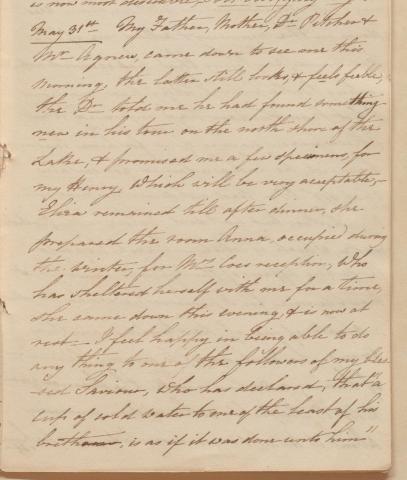 is now most
May 31st. My Father, Mother, Dr. Pitcher &
Mr Agnew, came down to see me this
morning, the latter still looks, & feels feeble,
the Dr told me he had found something
new in his tour on the north shore of the
Lake, & promised me a few specimens, for
my Henry, which will be very acceptable,-
Eliza remained till after dinner, she
prepared the room Anna, occupied during
the winter, for Mrs Coes reception, Who
has sheltered herself with me for a time,
she came down this evening, & is now at
rest - I feel happy in being able to do
any thing to one of the followers of my bles-
sed Saviour, who has declared, that "a
cup of cold water to one of the least of his
brethren, is as if it was done unto him"